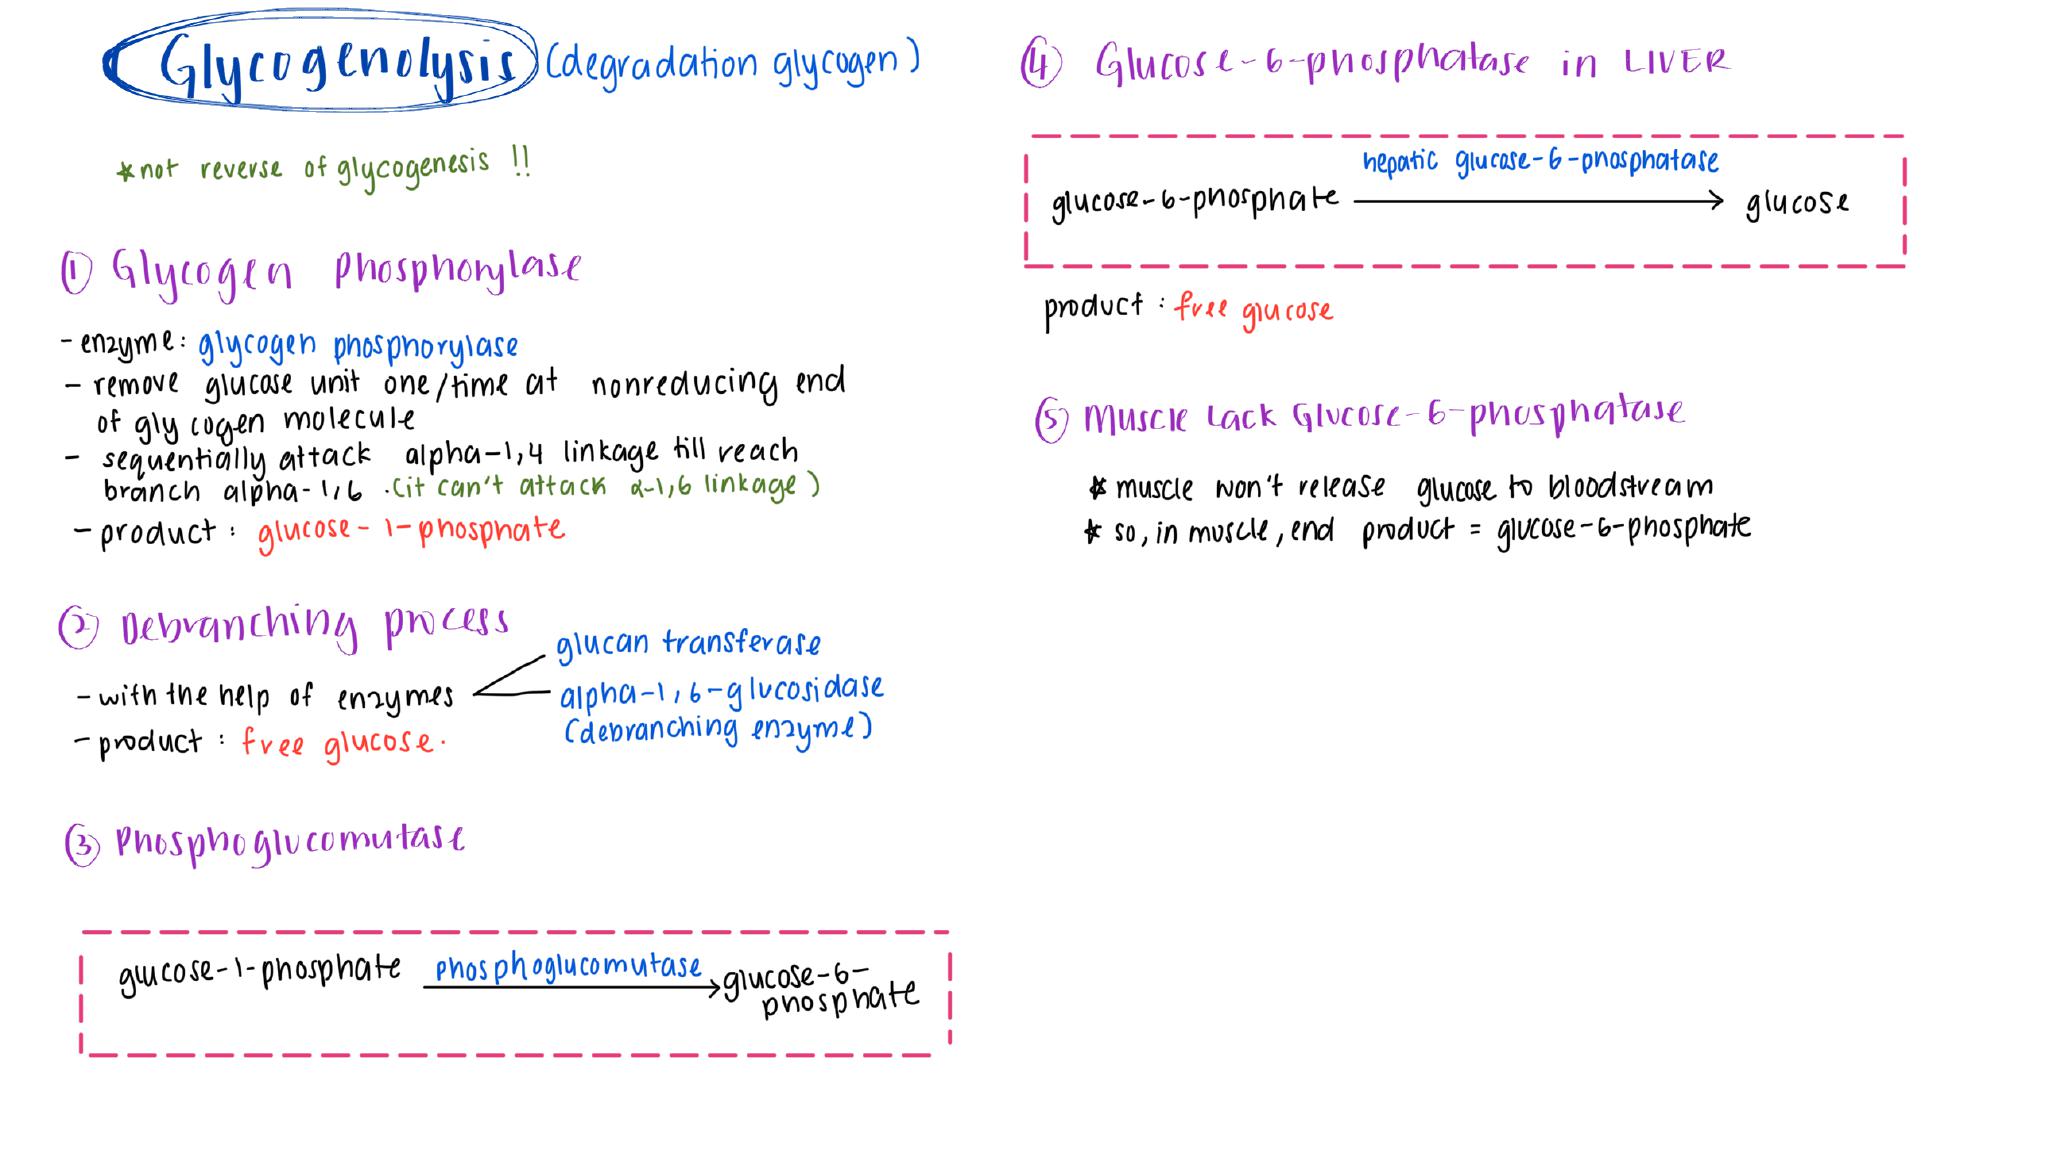 Glycogenolysis (degradation glycogen)
*not reverse of glycogenesis !!
① Glycogen Phosphorylase
- enzyme: glycogen phosphorylase
- remove glucose unit one/time at nonreducing end
of glycogen molecule
- sequentially attack alpha-1,4 linkage till reach
branch alpha-1,6 .(it can't attack α-1,6 linkage)
- product : glucose-1-phosphate
② Debranching process
- with the help of enzymes
glucan transferase
alpha-1,6-glucosidase
(debranching enzyme)
- product : free glucose.
③ Phosphoglucomutase
glucose-1-phosphate phosphoglucomutase glucose-6-
phosphate
④ Glucose-6-phosphatase in LIVER
hepatic glucose-6-phosphatase
glucose-6-phosphate glucose
product : free glucose
⑤ Muscle Lack Glucose-6-phosphatase
* muscle won't release glucose to bloodstream
* so, in muscle, end product = glucose-6-phosphate